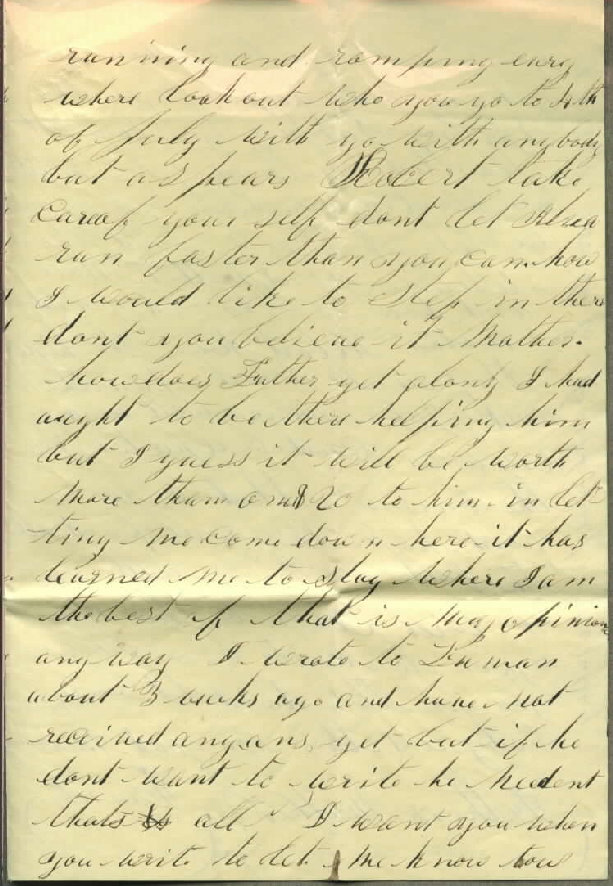 running and romping every
where look out who you go to 4th
of July with go with anybody
but a Spears Robert take
care of your self dont let
run faster than you can how
I would like to step in there
dont you believe it Mother.
how does Father get along I had
aught to be there helping him
but I guess it will be worth
more than $20 to him in let
ting me come down here it has
learned me to stay where I am
the best of that is my opinion
any way I wrote to
about 3 weeks ago and have not
received any ans, yet but if he
dont want to write he need ent
thats all I want you when
you write to let me know how